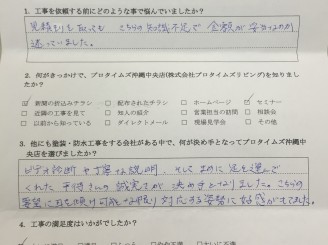 1. 工事を依頼する前にどのような事で悩んでいましたか?
見積りを取っても こちらの知識不足で 金額が妥当なのか
迷っていました。
2. 何がきっかけで、プロタイムズ沖縄中央店(株式会社プロタイムズリビング)を知りまし
たか?
☑ 新聞の折込みチラシ □ 配布されたチラシ □ ホームページ ☑ セミナー
□ 近隣の工事を見て □ 知人の紹介 □ 営業担当の訪問 □ 相談会
□ 以前から知っている □ ダイレクトメール □ 現場見学会 □ その他
3. 他にも塗装・防水工事をする会社がある中で、何が決め手となってプロタイムズ沖縄中
央店を選びましたか?
ビデオ診断や丁寧な説明、そしてまめに足を運んで
くれた さんの誠実さが 決め手となりました。こちらの
要望に耳を傾け可能な限り対応する姿勢に好感がもてました。
4. 工事の満足度はいかがでしたか?